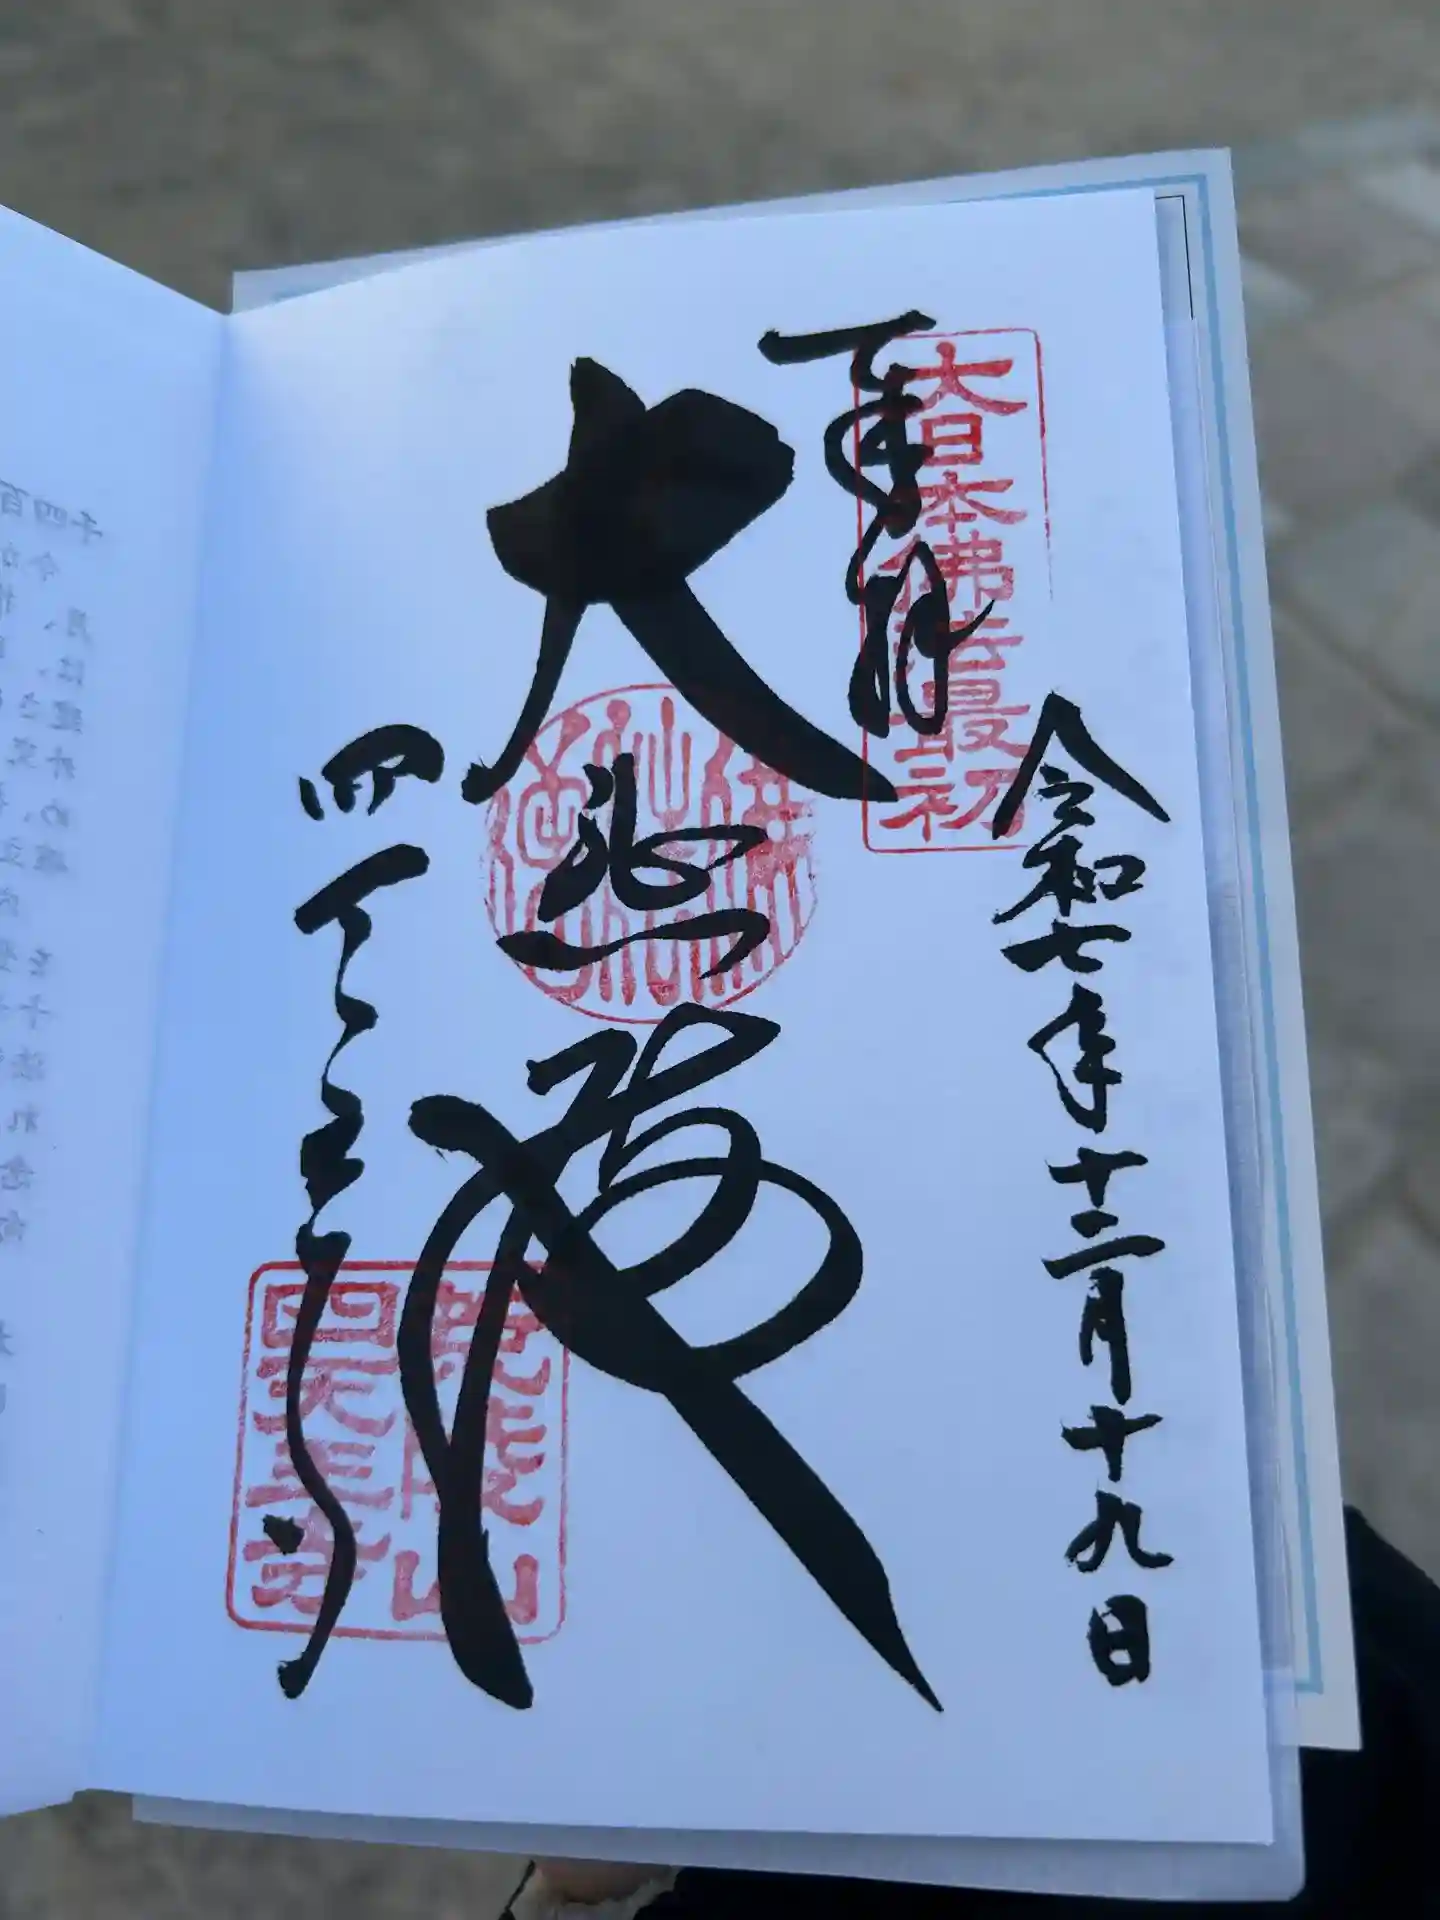 令和七年十二月十九日
奉拝
大日本佛法最初
大悲殿
四天王寺
荒陵山
四天王寺